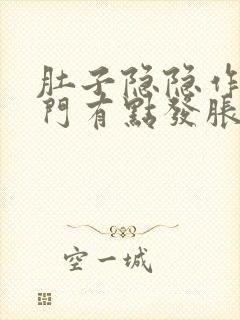 肚子隐隐作
門有點發脹
空一城